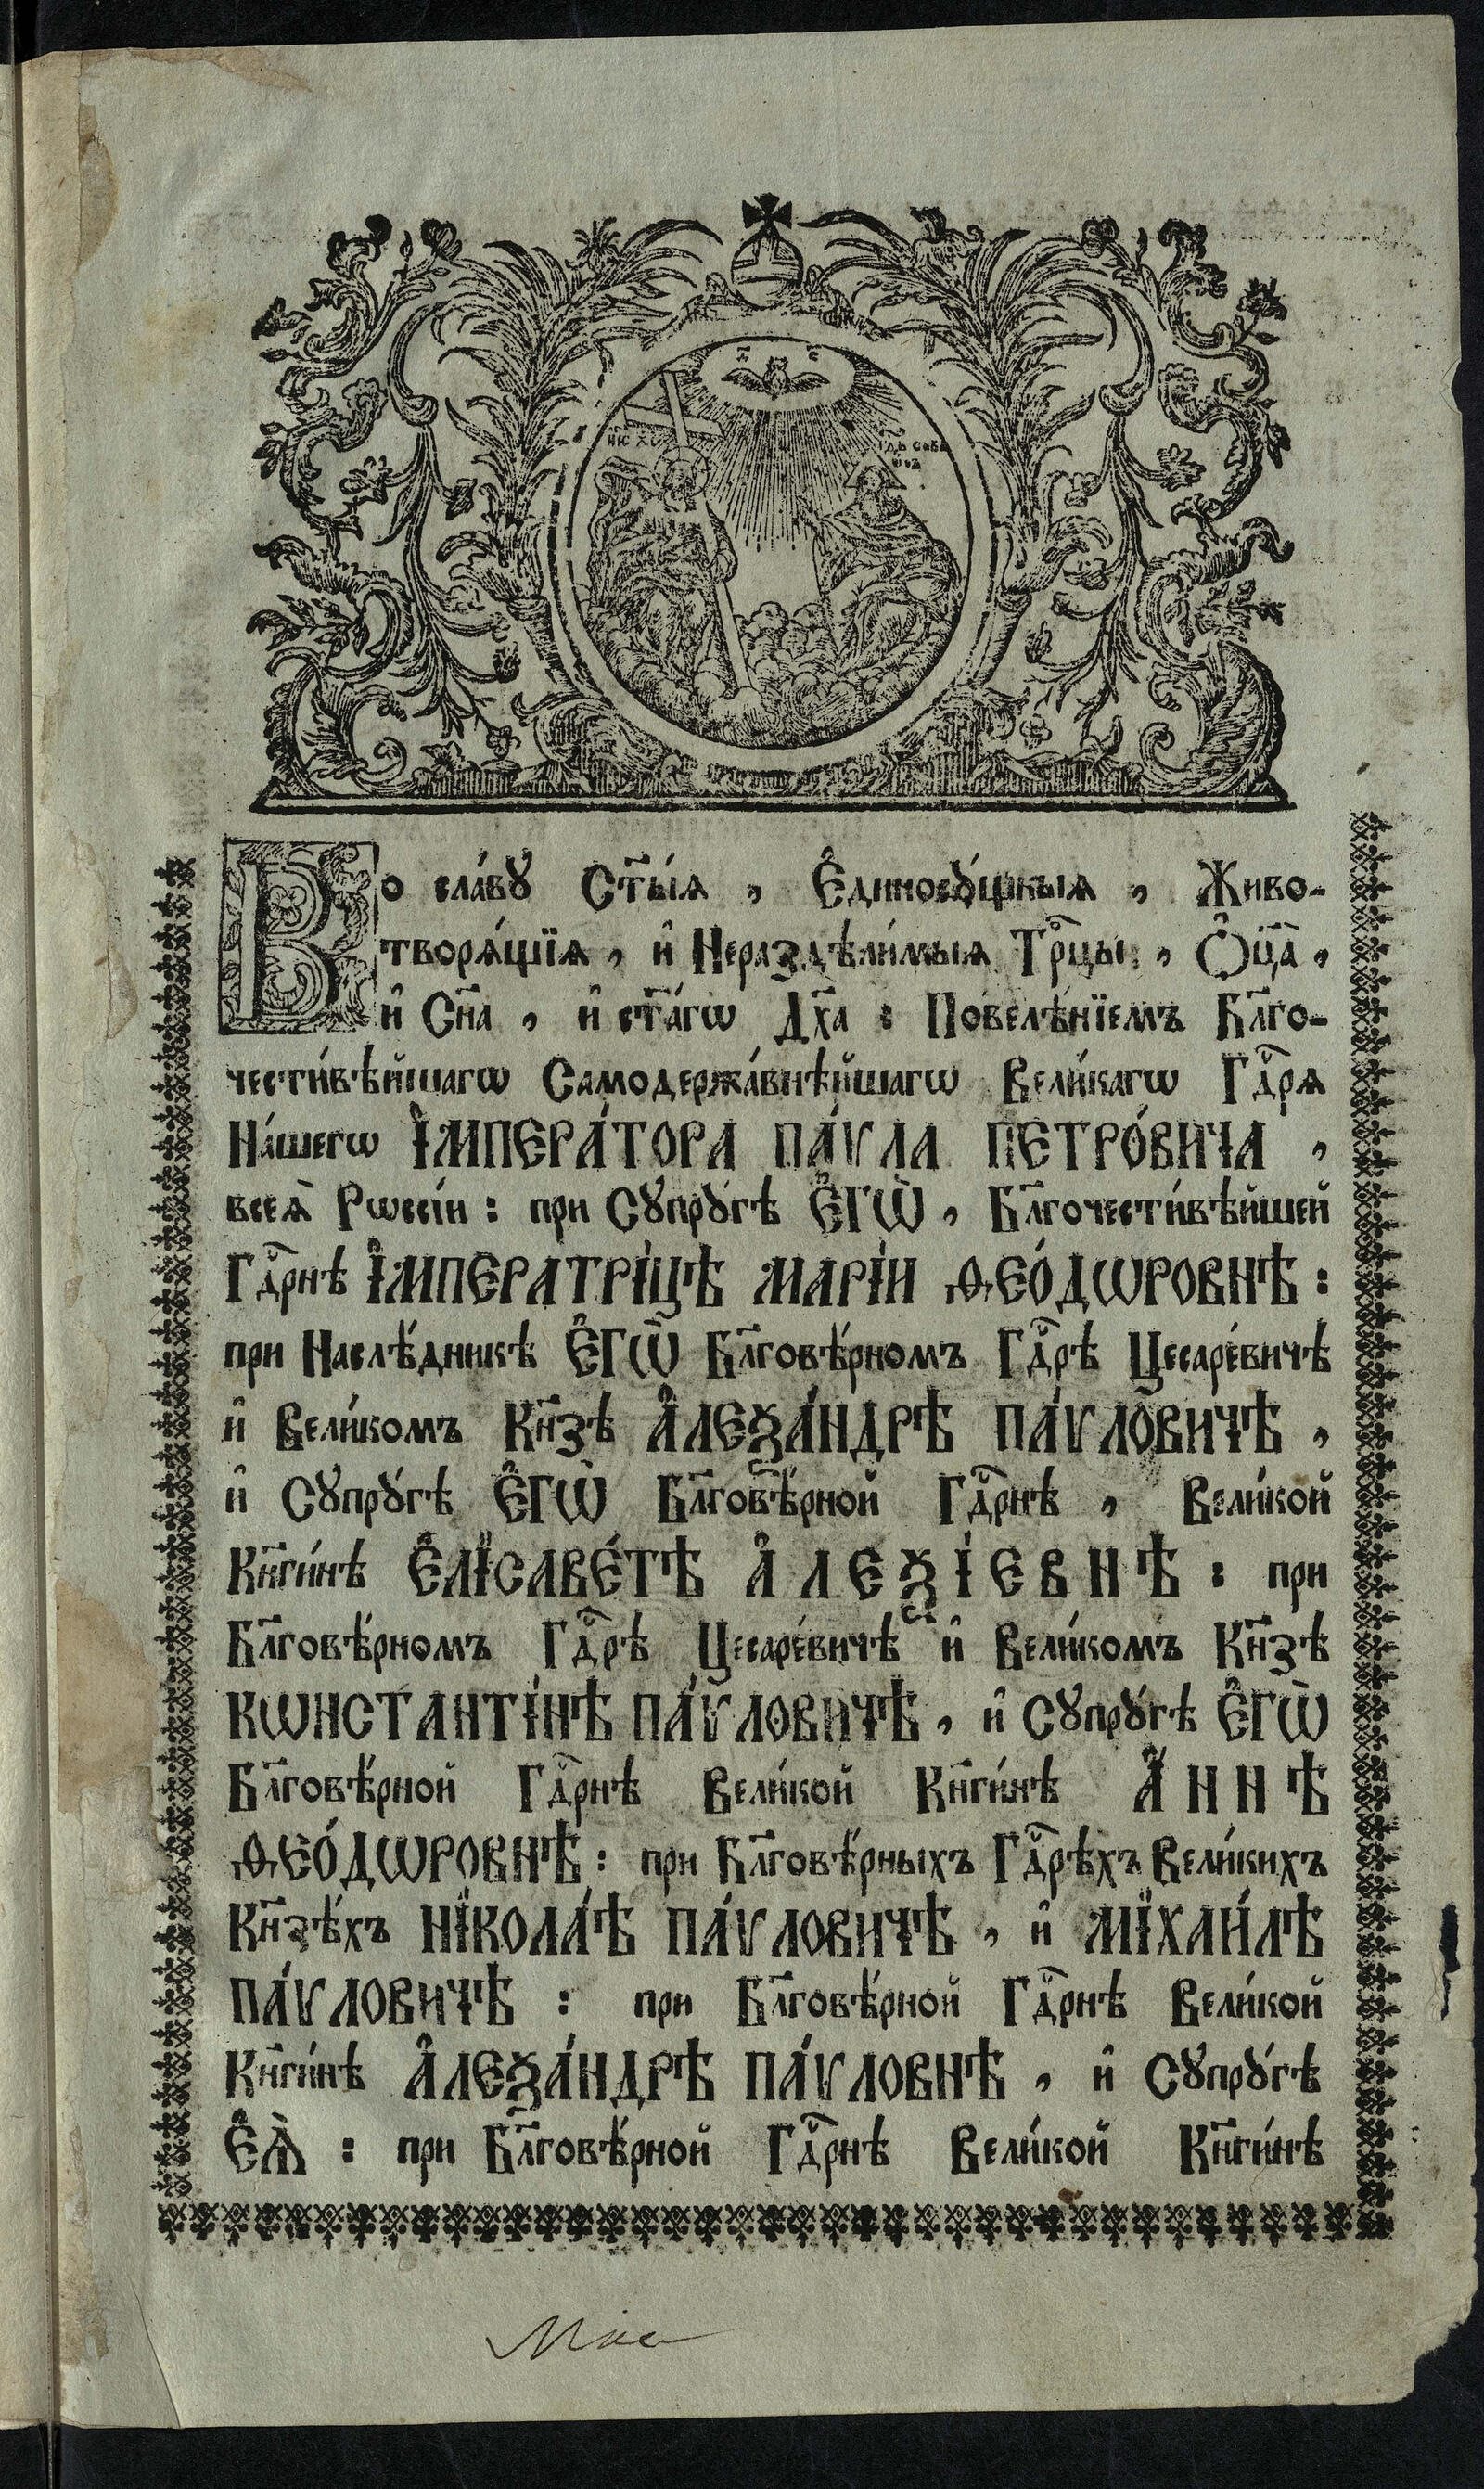 Во сла́вꙋ Ст҃ы́ѧ , Є҆диносꙋ́щныѧ , Живо-
творѧ́щїѧ , и҆ Нераздѣли́мыѧ Трⷪ҇цы , Ѻ҆ц҃а̀ ,
и҆ Сн҃а , и҆ ст҃а́гѡ Дх҃а : Повелѣ́нїемъ Бл҃го-
чести́вѣйшагѡ Самодержа́внѣйшагѡ Вели́кагѡ Гдⷭ҇рѧ
На́шегѡ І҆МПЕРА́ТОРА ПА́ѴЛА ПЕТРО́ВИЧА ,
всеѧ̀ Рѡссі́и : при Сꙋпрꙋ́гѣ Є҆ГѠ̀ , Бл҃гочести́вѣйшей
Гдⷭ҇рнѣ І҆МПЕРАТРІ́ЦѢ МАРІ́И ѲЕО́ДѠРОВНѢ :
при Наслѣ́дникѣ Є҆ГѠ̀ Бл҃говѣ́рномъ Гдⷭ҇рѣ Цесаре́вичѣ
и҆ Вели́комъ Кн҃зѣ А҆ЛЕѮА́НДРѢ ПА́ѴЛОВИЧѢ ,
и҆ Сꙋпрꙋ́гѣ Є҆ГѠ̀ Бл҃говѣ́рной Гдⷭ҇рнѣ , Вели́кой
Кн҃ги́нѣ Є҆ЛІСАВЕ́ТѢ А҆ЛЕѮІ́ЕВНѢ : при
Бл҃говѣ́рномъ Гдⷭ҇рѣ Цесаре́вичѣ и҆ Вели́комъ Кн҃зѣ
КѠНСТАНТІ́НѢ ПА́ѴЛОВИЧѢ , и҆ Сꙋпрꙋ́гѣ Є҆ГѠ̀
Бл҃говѣ́рной Гдⷭ҇рнѣ Вели́кой Кн҃ги́нѣ А҆́ННѢ
ѲЕО́ДѠРОВНѢ : при Бл҃говѣ́рныхъ Гдⷭ҇рѣхъ Вели́кихъ
Кн҃зѣ́хъ НІКОЛА́Ѣ ПА́ѴЛОВИЧѢ , и҆ МІХАИ́ЛѢ
ПА́ѴЛОВИЧѢ : при Бл҃говѣ́рной Гдⷭ҇рнѣ Вели́кой
Кн҃ги́нѣ А҆ЛЕѮА́НДРѢ ПА́ѴЛОВНѢ , и҆ Сꙋпрꙋ́гѣ
Є҆Ѧ̀ : при Бл҃говѣ́рной Гдⷭ҇рнѣ Вели́кой Кн҃ги́нѣ